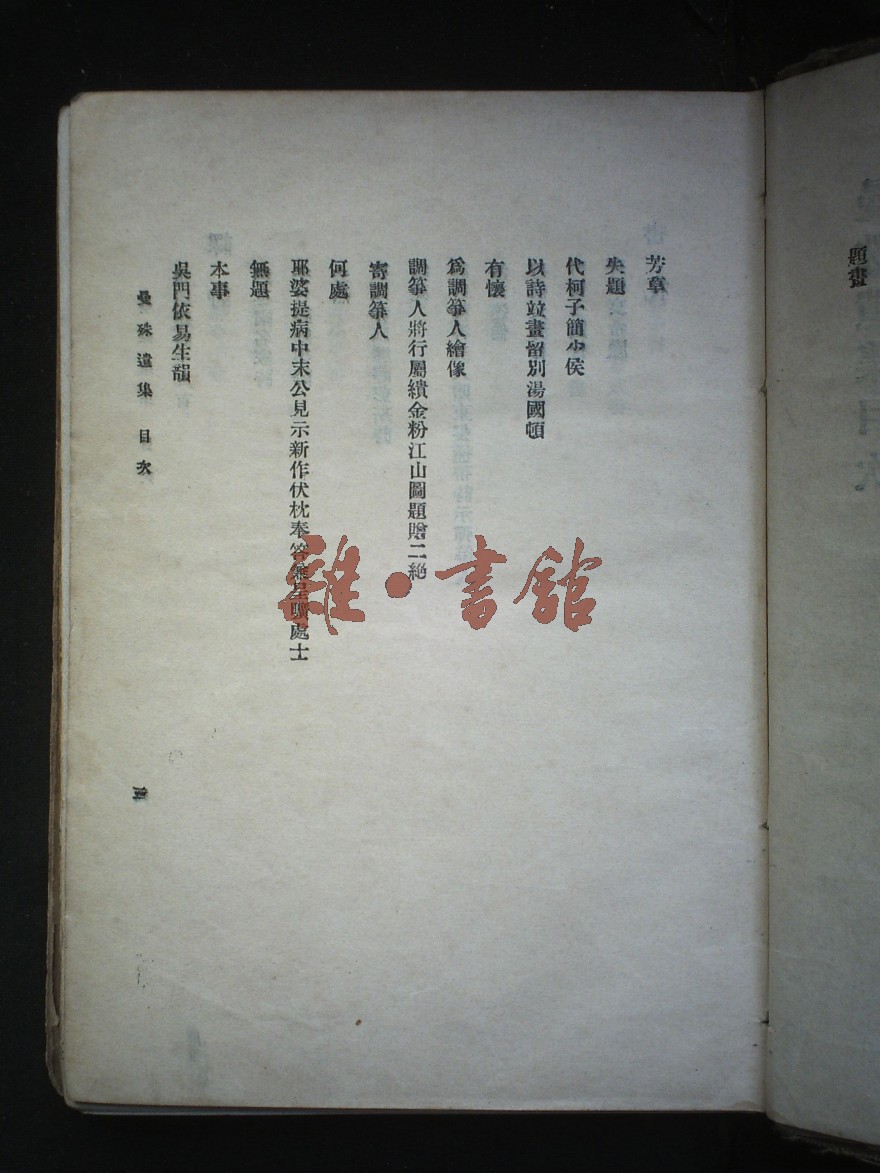 題畫
芳章
失題
代柯子簡少侯
以詩竝畫留別湯國頓
有懷
爲調箏人繪像
調箏人將行屬繢金粉江山圖題贈二絕
寄調箏人
何處
耶婆提病中末公見示新作伏枕奉答兼呈曠處士
無題
本事
吳門依易生韻
曼殊遺集 目次
雜·書館